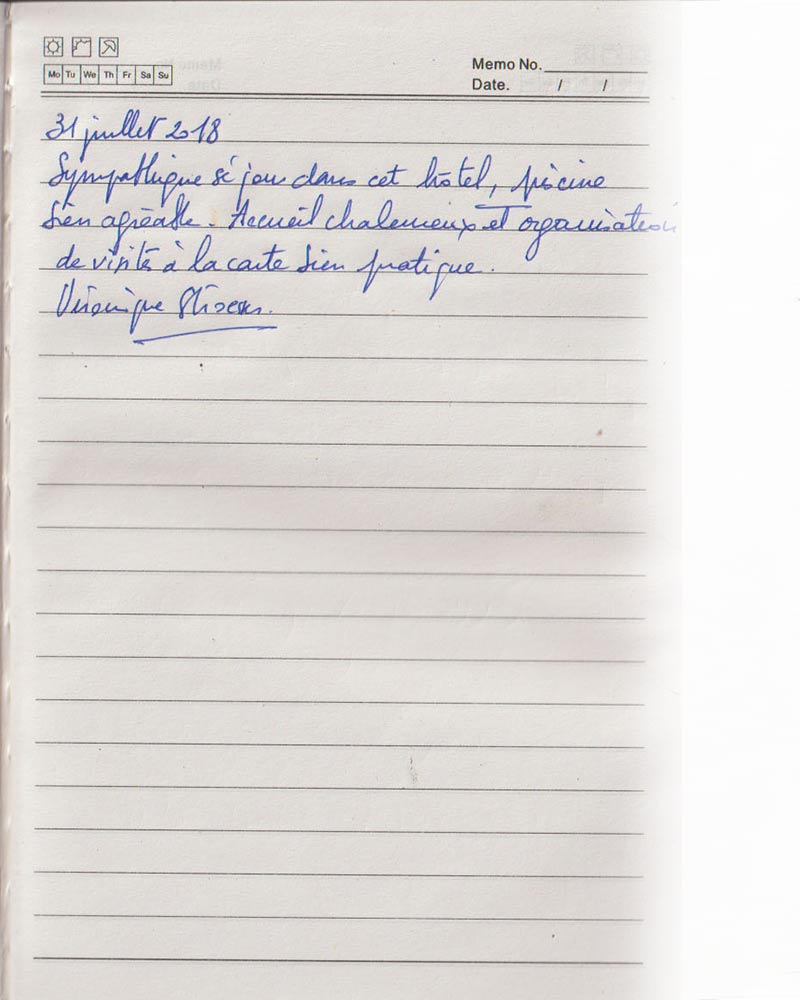 Mo Tu We Th Fr Sa Su
Memo No.
Date. / /
31 juillet 2018
Sympathique séjour dans cet hôtel, piscine
bien agréable. Accueil chaleureux et organisation
de visites à la carte bien pratique.
Véronique